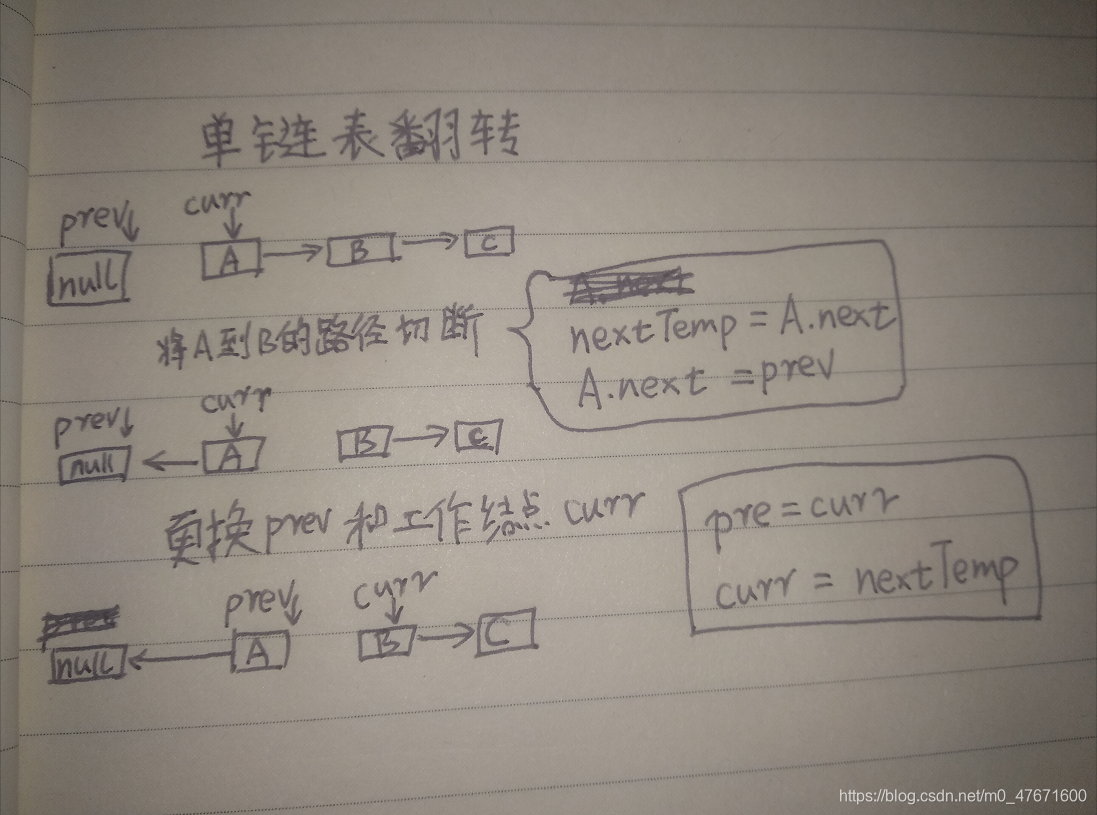 单链表翻转
prev curr
null A B C
将A到B的路径切断
nextTemp = A.next
A.next = prev
prev curr
null A B C
更换prev和工作结点 curr
pre = curr
curr = nextTemp
prev curr
null A B C
https://blog.csdn.net/m0_47671600